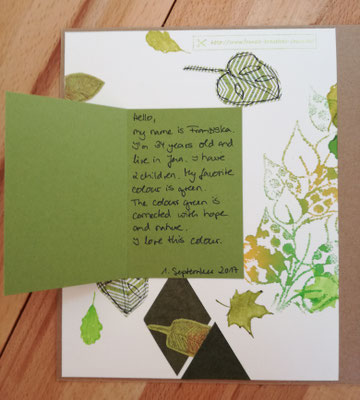 Hello,
my name is Franziska.
I'm 34 years old and
live in Jena. I have
2 children. My favorite
colour is green.
The colour green is
connected with hope
and nature.
I love this colour.
1. September 2017